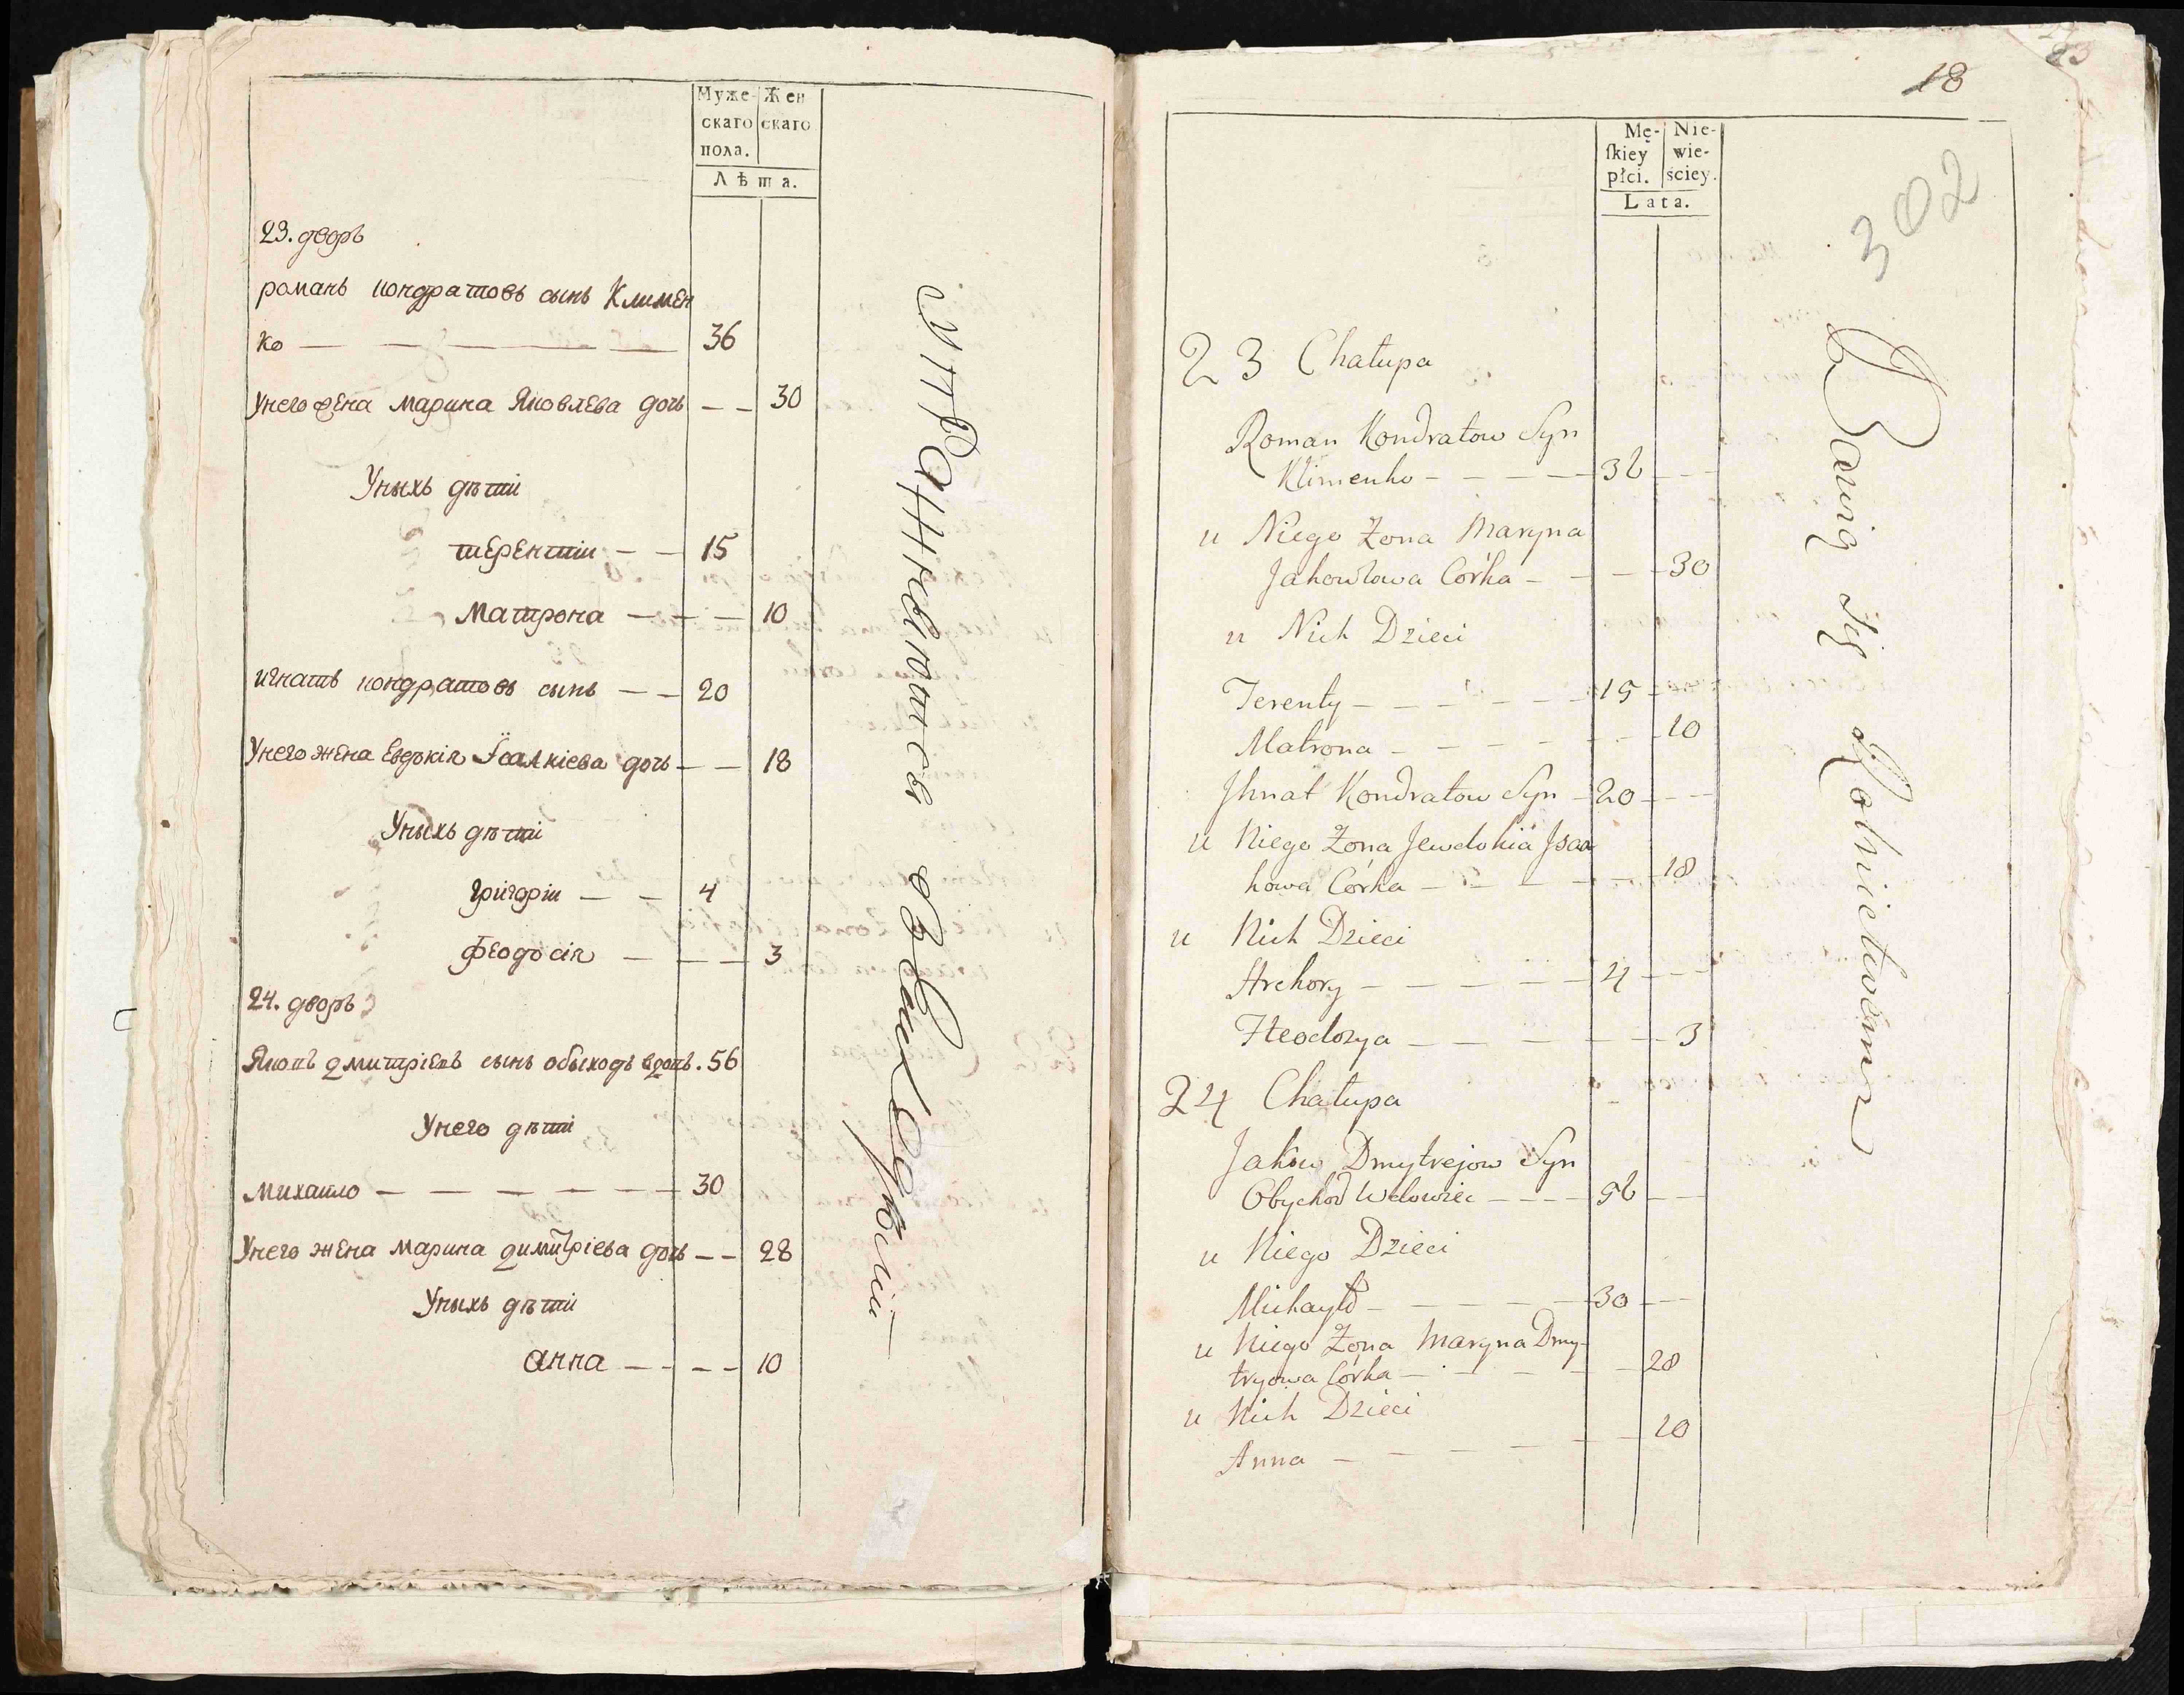 Муже-
скаго
пола.
Жен
скаго
Лѣта.
23. дворъ
романъ кондратовъ сынъ Климен
ко — — — — 36
Унего жена марина Яковлева дочь — — 30
Унихъ дѣти
терентій — — 15
матрона — — — 10
игнатъ кондратовъ сынъ — — 20
Унего жена Евдокія Ісаакіева дочь — — 18
Унихъ дѣти
григорій — — 4
феодосія — — — 3
24. дворъ
Яковъ дмитріевъ сынъ обыходъ вдовъ. 56
Унего дѣти
михайло — — — — — — 30
Унего жена марина димитріева дочь — — 28
Унихъ дѣти
анна — — — — 10
упражняются
18
23
302
Mę-
ſkiey
płci.
Nie-
wie-
ściey.
Lata.
23 Chałupa
Roman Kondratow Syn
Klimenko — — — — 36 — —
u Niego Żona Maryna
Jakowlowa Córka — — — 30
u Nich Dzieci
Terenty — — — — — — 15 —
Matrona — — — — — — 10
Jhnat Kondratow Syn — 20 — —
u Niego Żona Jewdokia Jsaa
kowa Córka — — — — — 18
u Nich Dzieci
Hrehory — — — — — 4 — —
Fteodozya — — — — — — 3
24 Chałupa
Jakow Dmytrejow Syn
Obychod Wdowiec — — — 56 — —
u Niego Dzieci
Michayło — — — — — 30 — —
u Niego Żona Maryna Dmy-
tryowa Córka — — — — — 28
u Nich Dzieci
Anna — — — — — — 10
Bawią się Rolnictwem